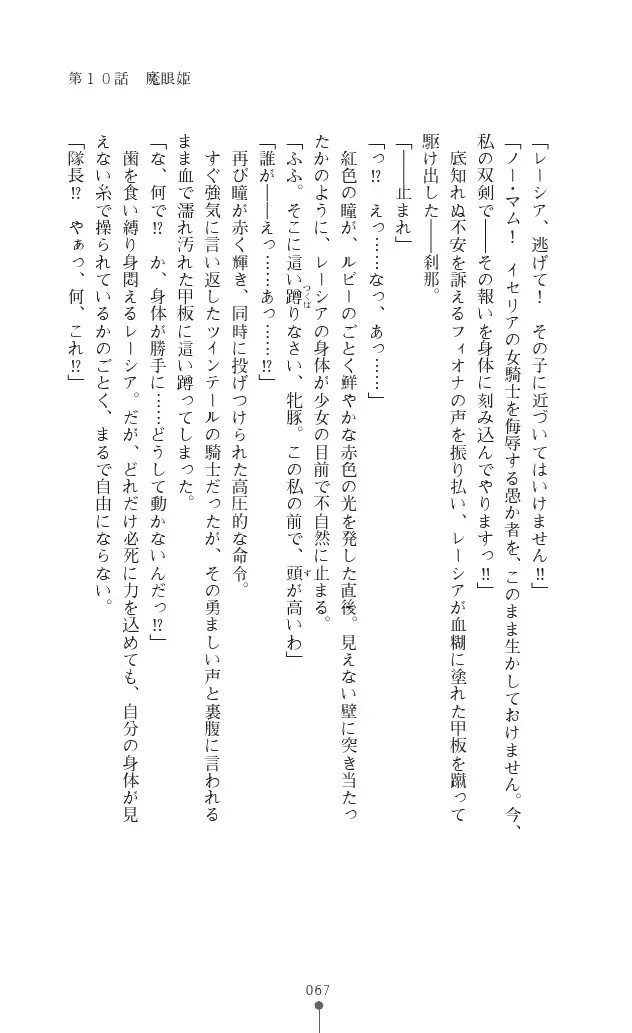 第１０話　魔眼姫
「レーシア、逃げて！　その子に近づいてはいけません‼」
「ノー・マム！　イセリアの女騎士を侮辱する愚か者を、このまま生かしておけません。今、
私の双剣で――その報いを身体に刻み込んでやりますっ‼」
　底知れぬ不安を訴えるフィオナの声を振り払い、レーシアが血糊に塗れた甲板を蹴って
駆け出した――刹那。
「――止まれ」
「っ⁉　えっ……なっ、あっ……」
　紅色の瞳が、ルビーのごとく鮮やかな赤色の光を発した直後。見えない壁に突き当たっ
たかのように、レーシアの身体が少女の目前で不自然に止まる。
「ふふ。そこに這い蹲りなさい、牝豚。この私の前で、頭が高いわ」
つくば
ず
「誰が――えっ……あっ……⁉」
　再び瞳が赤く輝き、同時に投げつけられた高圧的な命令。
　すぐ強気に言い返したツインテールの騎士だったが、その勇ましい声と裏腹に言われる
まま血で濡れ汚れた甲板に這い蹲ってしまった。
「な、何で⁉　か、身体が勝手に……どうして動かないんだっ⁉」
　歯を食い縛り身悶えるレーシア。だが、どれだけ必死に力を込めても、自分の身体が見
えない糸で操られているかのごとく、まるで自由にならない。
「隊長⁉　やぁっ、何、これ⁉」
067